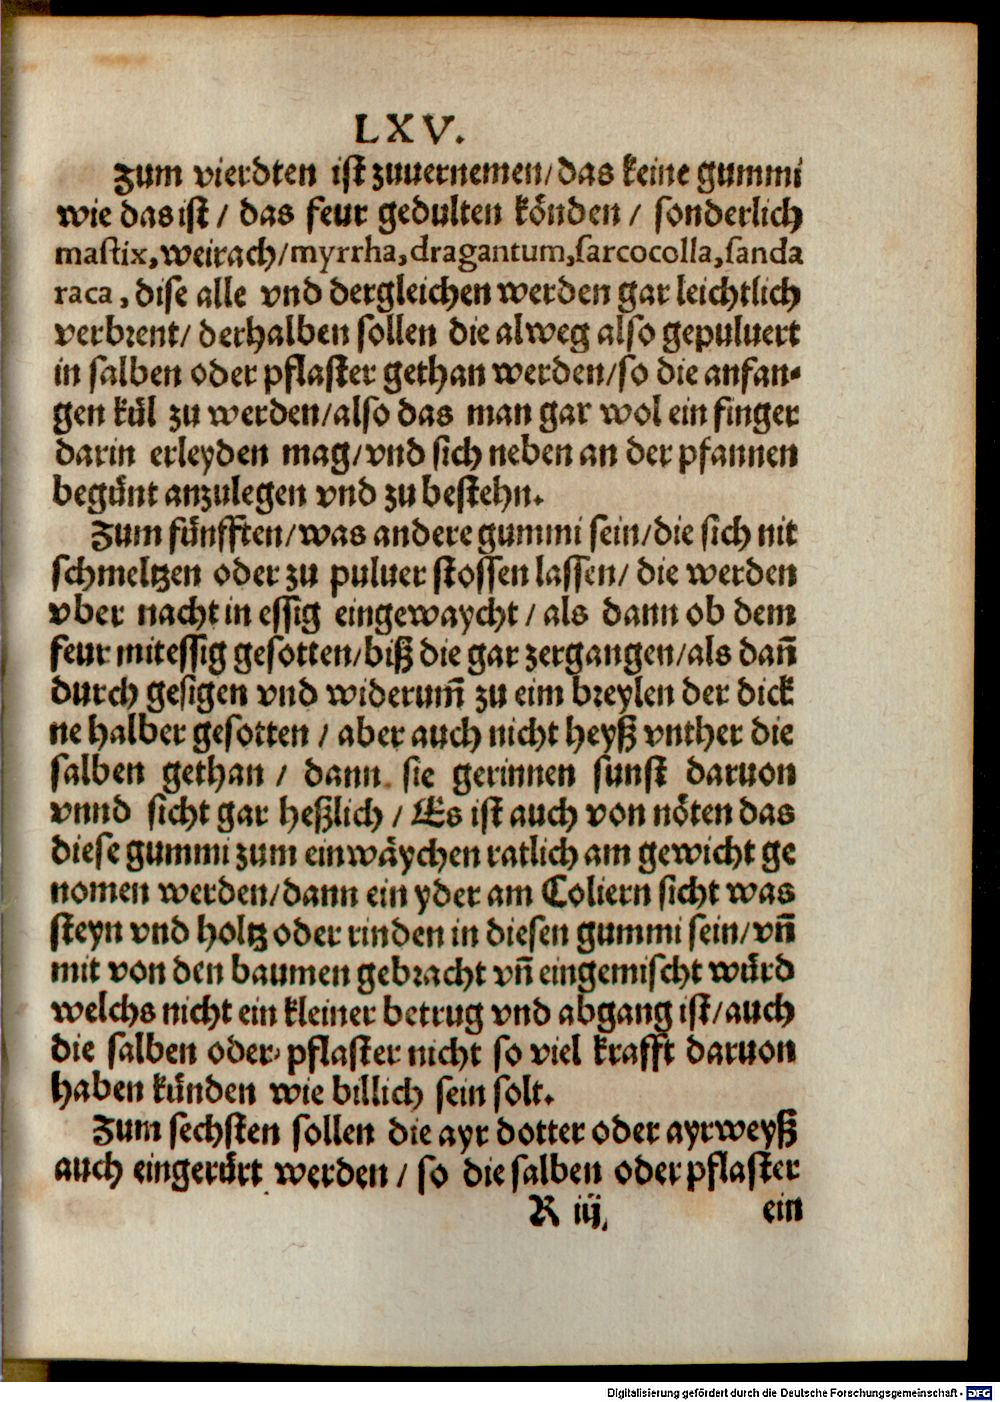 LXV.
Zum vierdten ist zuuernemen/das keine gummi
wie das ist / das feur gedulten könden / sonderlich
mastix, weirach/myrrha, dragantum, sarcocolla, sanda
raca, dise alle vnd dergleichen werden gar leichtlich
verbrent/ derhalben sollen die alweg also gepuluert
in salben oder pflaster gethan werden/so die anfan-
gen kül zu werden/also das man gar wol ein finger
darin erleyden mag/vnd sich neben an der pfannen
begünt anzulegen vnd zu bestehn.
Zum fünfften/was andere gummi sein/die sich nit
schmeltzen oder zu puluer stossen lassen/ die werden
vber nacht in essig eingewaycht / als dann ob dem
feur mit essig gesotten/biß die gar zergangen/als dañ
durch gesigen vnd widerum̄ zu eim breylen der dick
ne halber gesotten / aber auch nicht heyß vnther die
salben gethan / dann sie gerinnen sunst daruon
vnnd sicht gar heßlich / Es ist auch von nöten das
diese gummi zum einwäychen ratlich am gewicht ge
nomen werden/dann ein yder am Coliern sicht was
steyn vnd holtz oder rinden in diesen gummi sein/vñ
mit von den baumen gebracht vñ eingemischt würd
welchs nicht ein kleiner betrug vnd abgang ist/auch
die salben oder pflaster nicht so viel krafft daruon
haben künden wie billich sein solt.
Zum sechsten sollen die ayr dotter oder ayrweyß
auch eingerürt werden / so die salben oder pflaster
R iij, ein
Digitalisierung gefördert durch die Deutsche Forschungsgemeinschaft - DFG